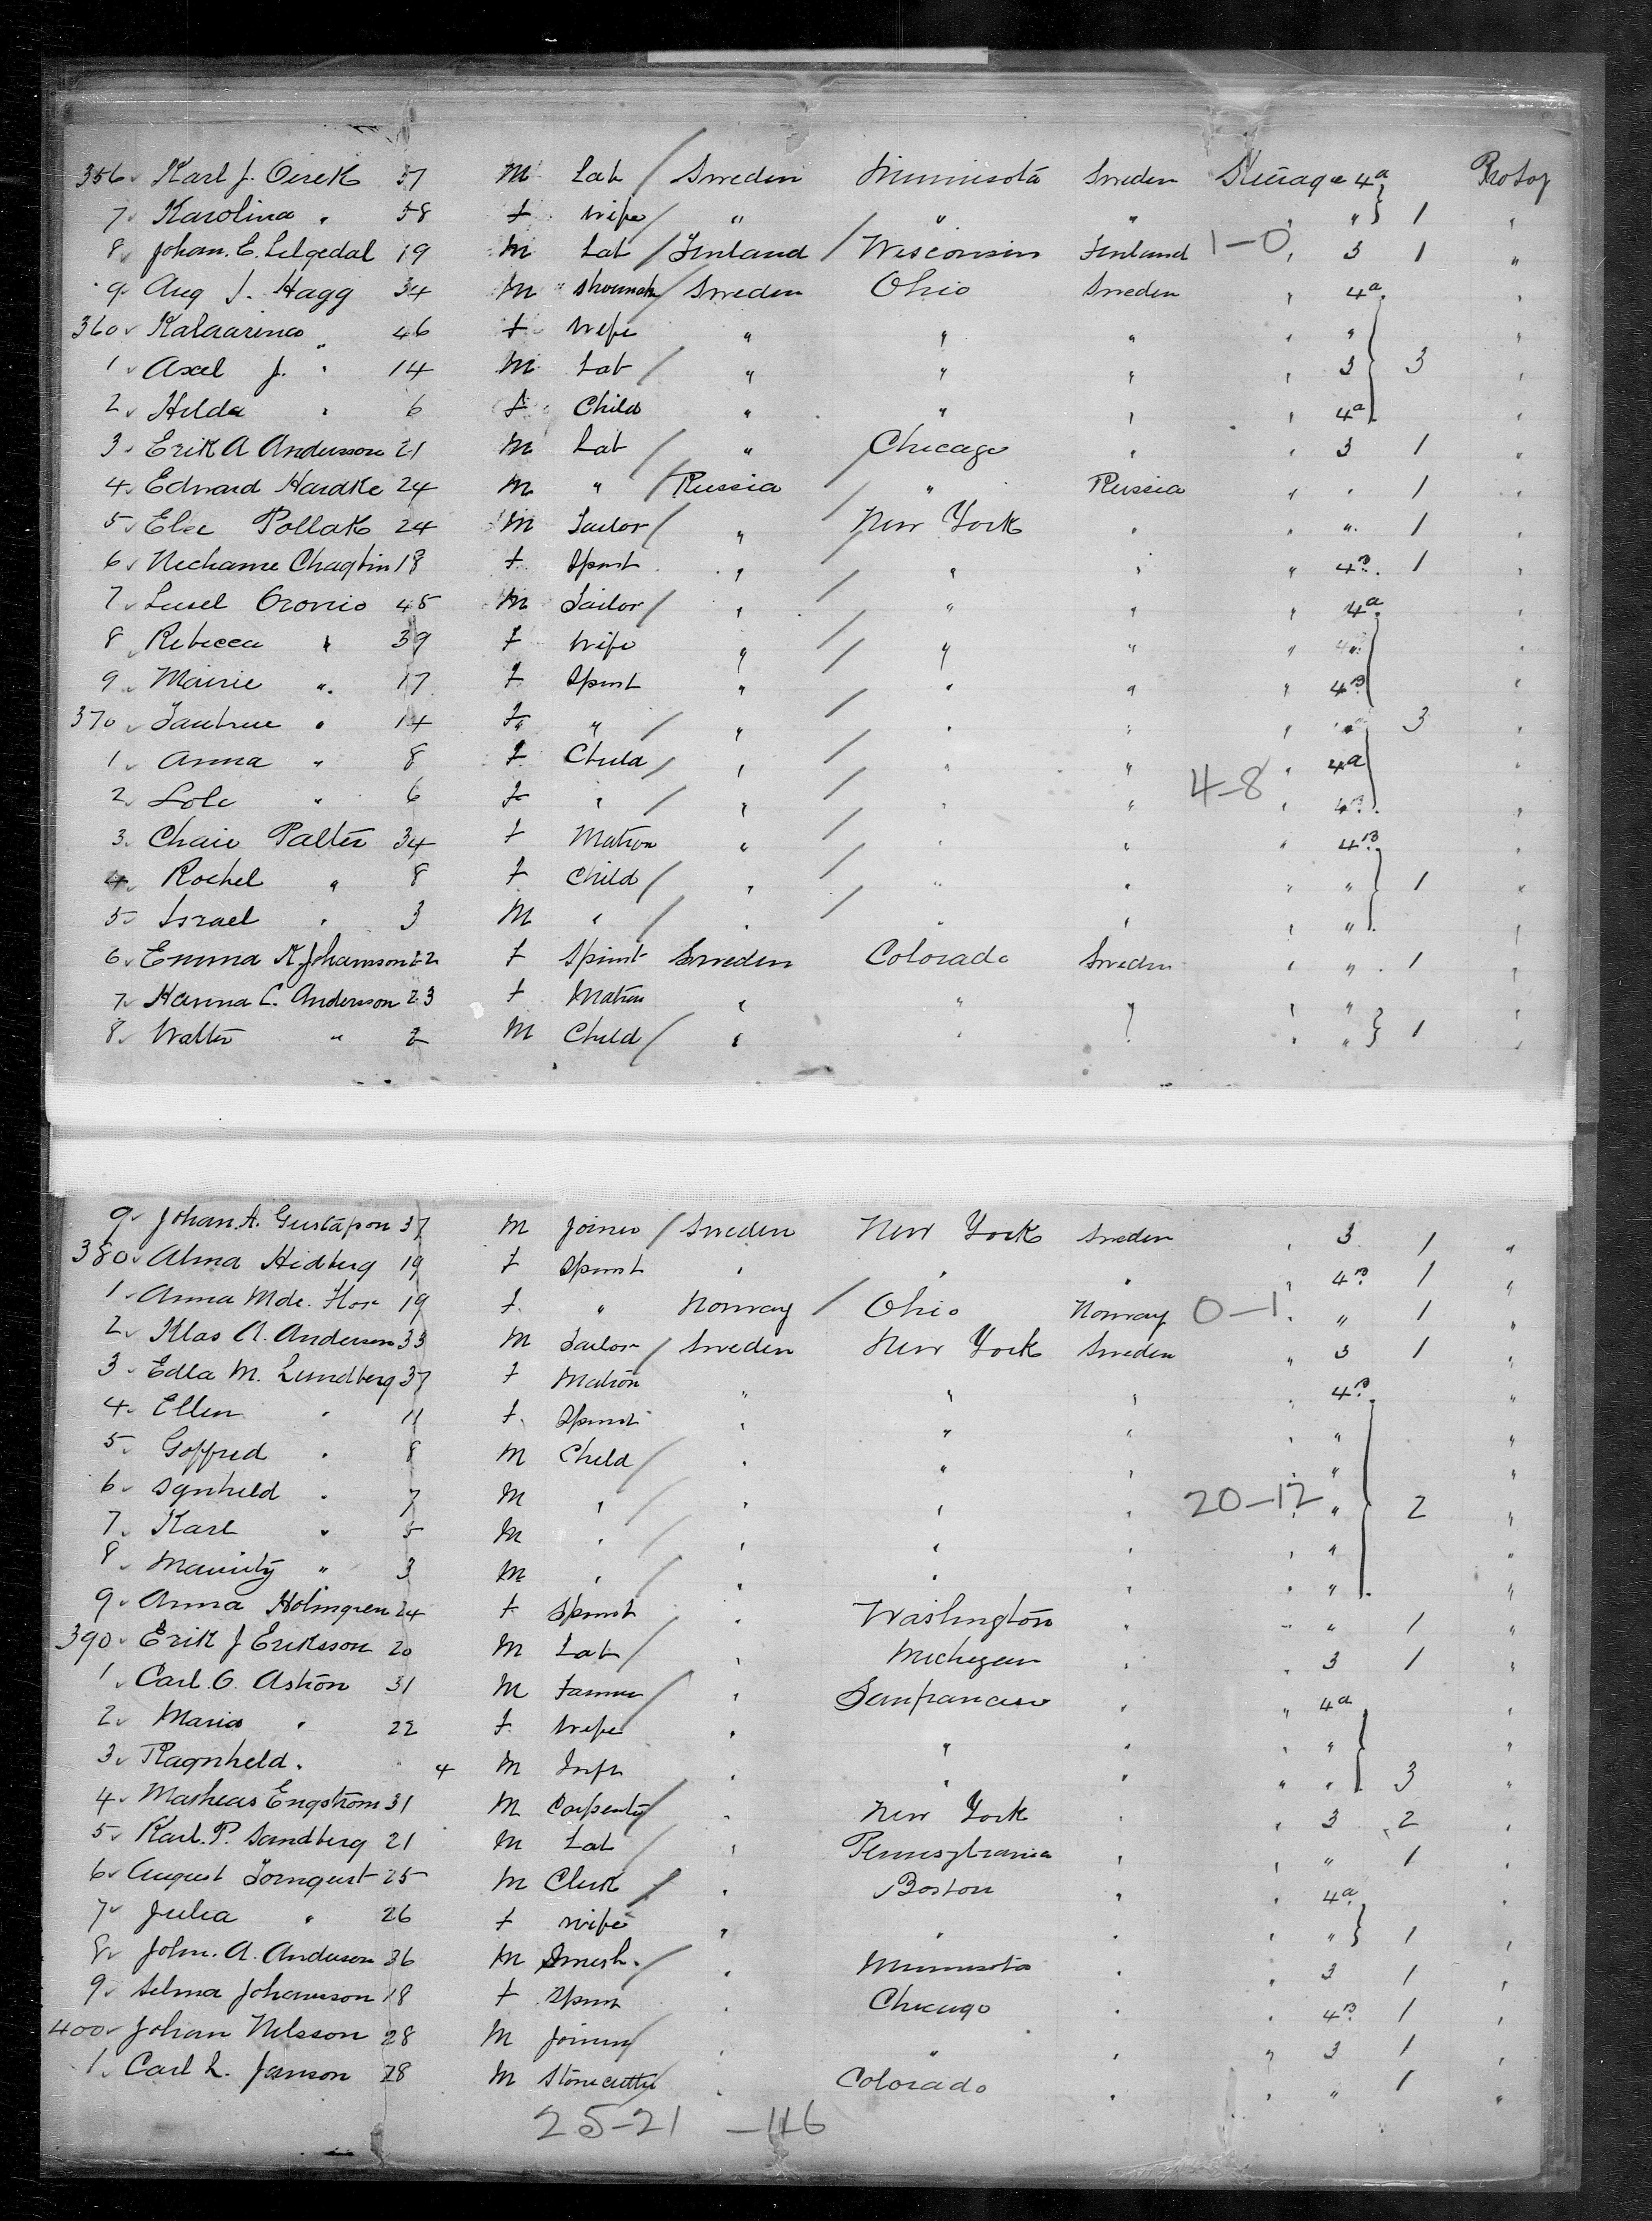 356 Karl J. Oisek 37 M Lab / Sweden Minnisota Sweden Steerage 4a
7 Karolina " 58 f wife / " " " " " } 1 "
8 Johan. E. Lilgedal 19 M Lab / Finland / Wisconsin Finland 1-0 " 3 1 "
9 Aug J. Hagg 34 M / Sweden Ohio Sweden " 4a "
360 46 f Wife " " " " " "
1 Axel J. " 14 M Lab / " " " " 3 } 3 "
2 Hilda " 6 f Child " " " " 4a "
3 Erik A Anderson 21 M Lab / " / Chicago " " 3 1 "
4 Edward Hardke 24 M " / Russia / " Russia " " 1 "
5 Pollak 24 M Tailor / " / New York " " " 1 "
6 Nechame Chagtin 18 f Spinst " / " " " 4B 1 "
7 45 M Tailor / " / " " " 4a "
8 Rebecca " 39 f Wife " / " " " "
9 " 17 f Spinst " " " " 4B "
370 " 14 f " / " / " " " 3 "
1 Anna " 8 f Child / " / " " " 4a "
2 " 6 f " / " / " " 4-8 " 4B "
3 Palter 34 f Matron " / " " " 4B "
4 Rochel " 8 f Child / " / " " " " } 1 "
5 Israel " 3 M " / " / " " " " "
6 Emma K. Johansson 22 f Spinst Sweden Colorado Sweden " " 1 "
7 Hanna C. Anderson 23 f Matron " " " " " "
8 Walter " 2 M Child / " " " " " } 1 "
9 Johan. A. Gustafson 37 M Joiner / Sweden New York Sweden " 3 1 "
380 Alma Hidberg 19 f Spinst " " " " 4B 1 "
1 Anna 19 f " Norway / Ohio Norway 0-1 " " 1 "
2 Klas A. Anderson 33 M Tailor / Sweden New York Sweden " 3 1 "
3 Edla M. Lundberg 37 f Matron " " " " 4B "
4 Ellen " 11 f Spinst " " " " " "
5 Goffred " 8 M Child / " " " " " "
6 Synheld " 7 M " / " " " 20-12 " " } 2 "
7 Karl " 5 M " / " " " " " "
8 " 3 M " / " " " " " "
9 Anna Holmgren 24 f Spinst " Washington " " " 1 "
390 Erik J Eriksson 20 M Lab / " Michegan " " 3 1 "
1 Carl. O. Astron 31 M Farmer / " Sanfrancisco " " 4a "
2 Maria " 22 f Wife " " " " " "
3 Ragnheld " 4 M Inft " " " " " } 3 "
4 Matheas Engstrom 31 M Carpenter / " New York " " 3 2 "
5 Karl. P. Sandberg 21 M Lab / " Pennsylvania " " " 1 "
6 August Tornqust 25 M Clerk / " Boston " " 4a "
7 Julia " 26 f Wife " " " " " } 1 "
8 John. A. Anderson 36 M / " Minnisota " " 3 1 "
9 Selma Johansson 18 f Spinst " Chicago " " 4B 1 "
400 Johan Nilsson 28 M Joiner / " " " " 3 1 "
1 Carl L. Janson 28 M Stonecutter / " Colorado " " " 1 "
25-21 -46